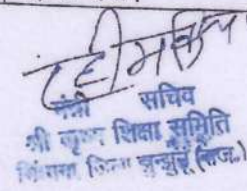 मंत्री सचिव
श्री कृष्ण शिक्षा समिति
जिला झुन्झुनू (राज.)